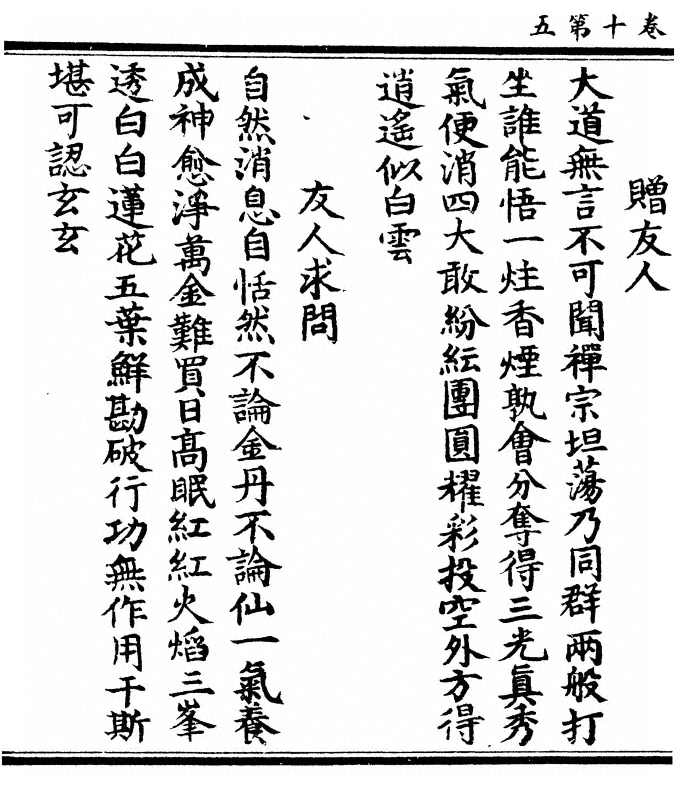 卷十第五
贈友人
大道無言不可聞禪宗坦蕩乃同群兩般打
坐誰能悟一炷香煙孰會分奪得三光真秀
氣便消四大敢紛紜團圓耀彩投空外方得
逍遙似白雲
友人求問
自然消息自恬然不論金丹不論仙一氣養
成神愈淨萬金難買日高眠紅紅火焰三峯
透白白蓮花五葉鮮勘破行功無作用于斯
堪可認玄玄